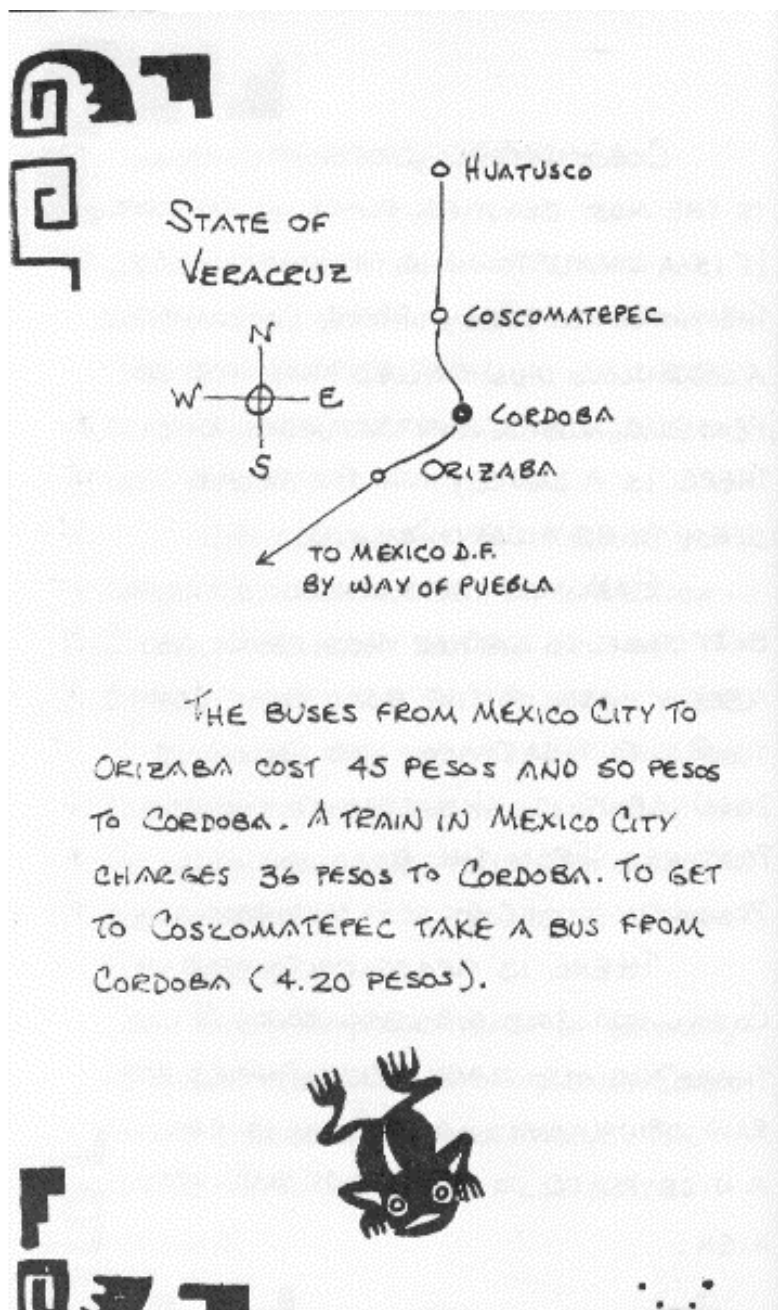 HUATUSCO
STATE OF
VERACRUZ
COSCOMATEPEC
N
W E
CORDOBA
S
ORIZABA
TO MEXICO D.F.
BY WAY OF PUEBLA
THE BUSES FROM MEXICO CITY TO
ORIZABA COST 45 PESOS AND 50 PESOS
TO CORDOBA. A TRAIN IN MEXICO CITY
CHARGES 36 PESOS TO CORDOBA. TO GET
TO COSCOMATEPEC TAKE A BUS FROM
CORDOBA (4.20 PESOS).